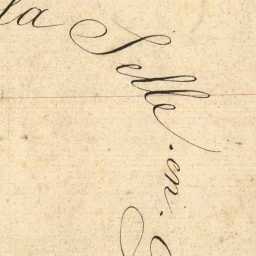 la Selle.en.